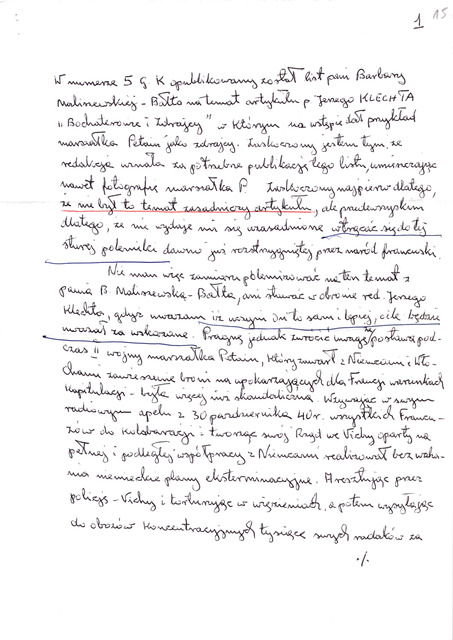 1 15
W numerze 5 G. K opublikowany został list pani Barbary
Maliszewskiej - Bałta na temat artykułu p Jerzego KLECHTA
"Bochaterowie i zdrajcy" w którym na wstępie dał przykład
marszałka Petain jako zdrajcy. Zaskoczony jestem tym, że
redakcja uznała za potrzebne publikację tego listu, umieszczając
nawet fotografię marszałka P. Zaskoczony najpierw dlatego,
że nie był to temat zasadniczy artykułu, ale przedewszystkim
dlatego, że nie wydaje mi się uzasadnione wtrącać się do tej
starej polemiki dawno już rozstrzygniętej przez naród francuski.
Nie mam więc zamiaru polemizować na ten temat z
panią B. Maliszewską - Bałta, ani stawać w obronie red. Jerzego
Klechta, gdyż uważam iż uczyni on to sam i lepiej, o ile będzie
uważał za wskazane. Pragnę jednak zwrócić uwagę, że postawa pod-
czas II wojny marszałka Petain, który zawarł z Niemcami i Wło-
chami zawieszenie broni na upokarzających dla Francji warunkach
kapitulacji - była więcej niż skandaliczna. Wzywając w swym
radiowym apelu z 30 października 40 r. wszystkich Francu-
zów do kolaboracji i tworząc swój Rząd we Vichy oparty na
pełnej i podległej współpracy z Niemcami realizował bez waha-
nia niemieckie plany eksterminacyjne. Aresztując przez
policję - Vichy i torturując w więzieniach, a potem wysyłając
do obozów koncentracyjnych tysiące swych rodaków za
./.